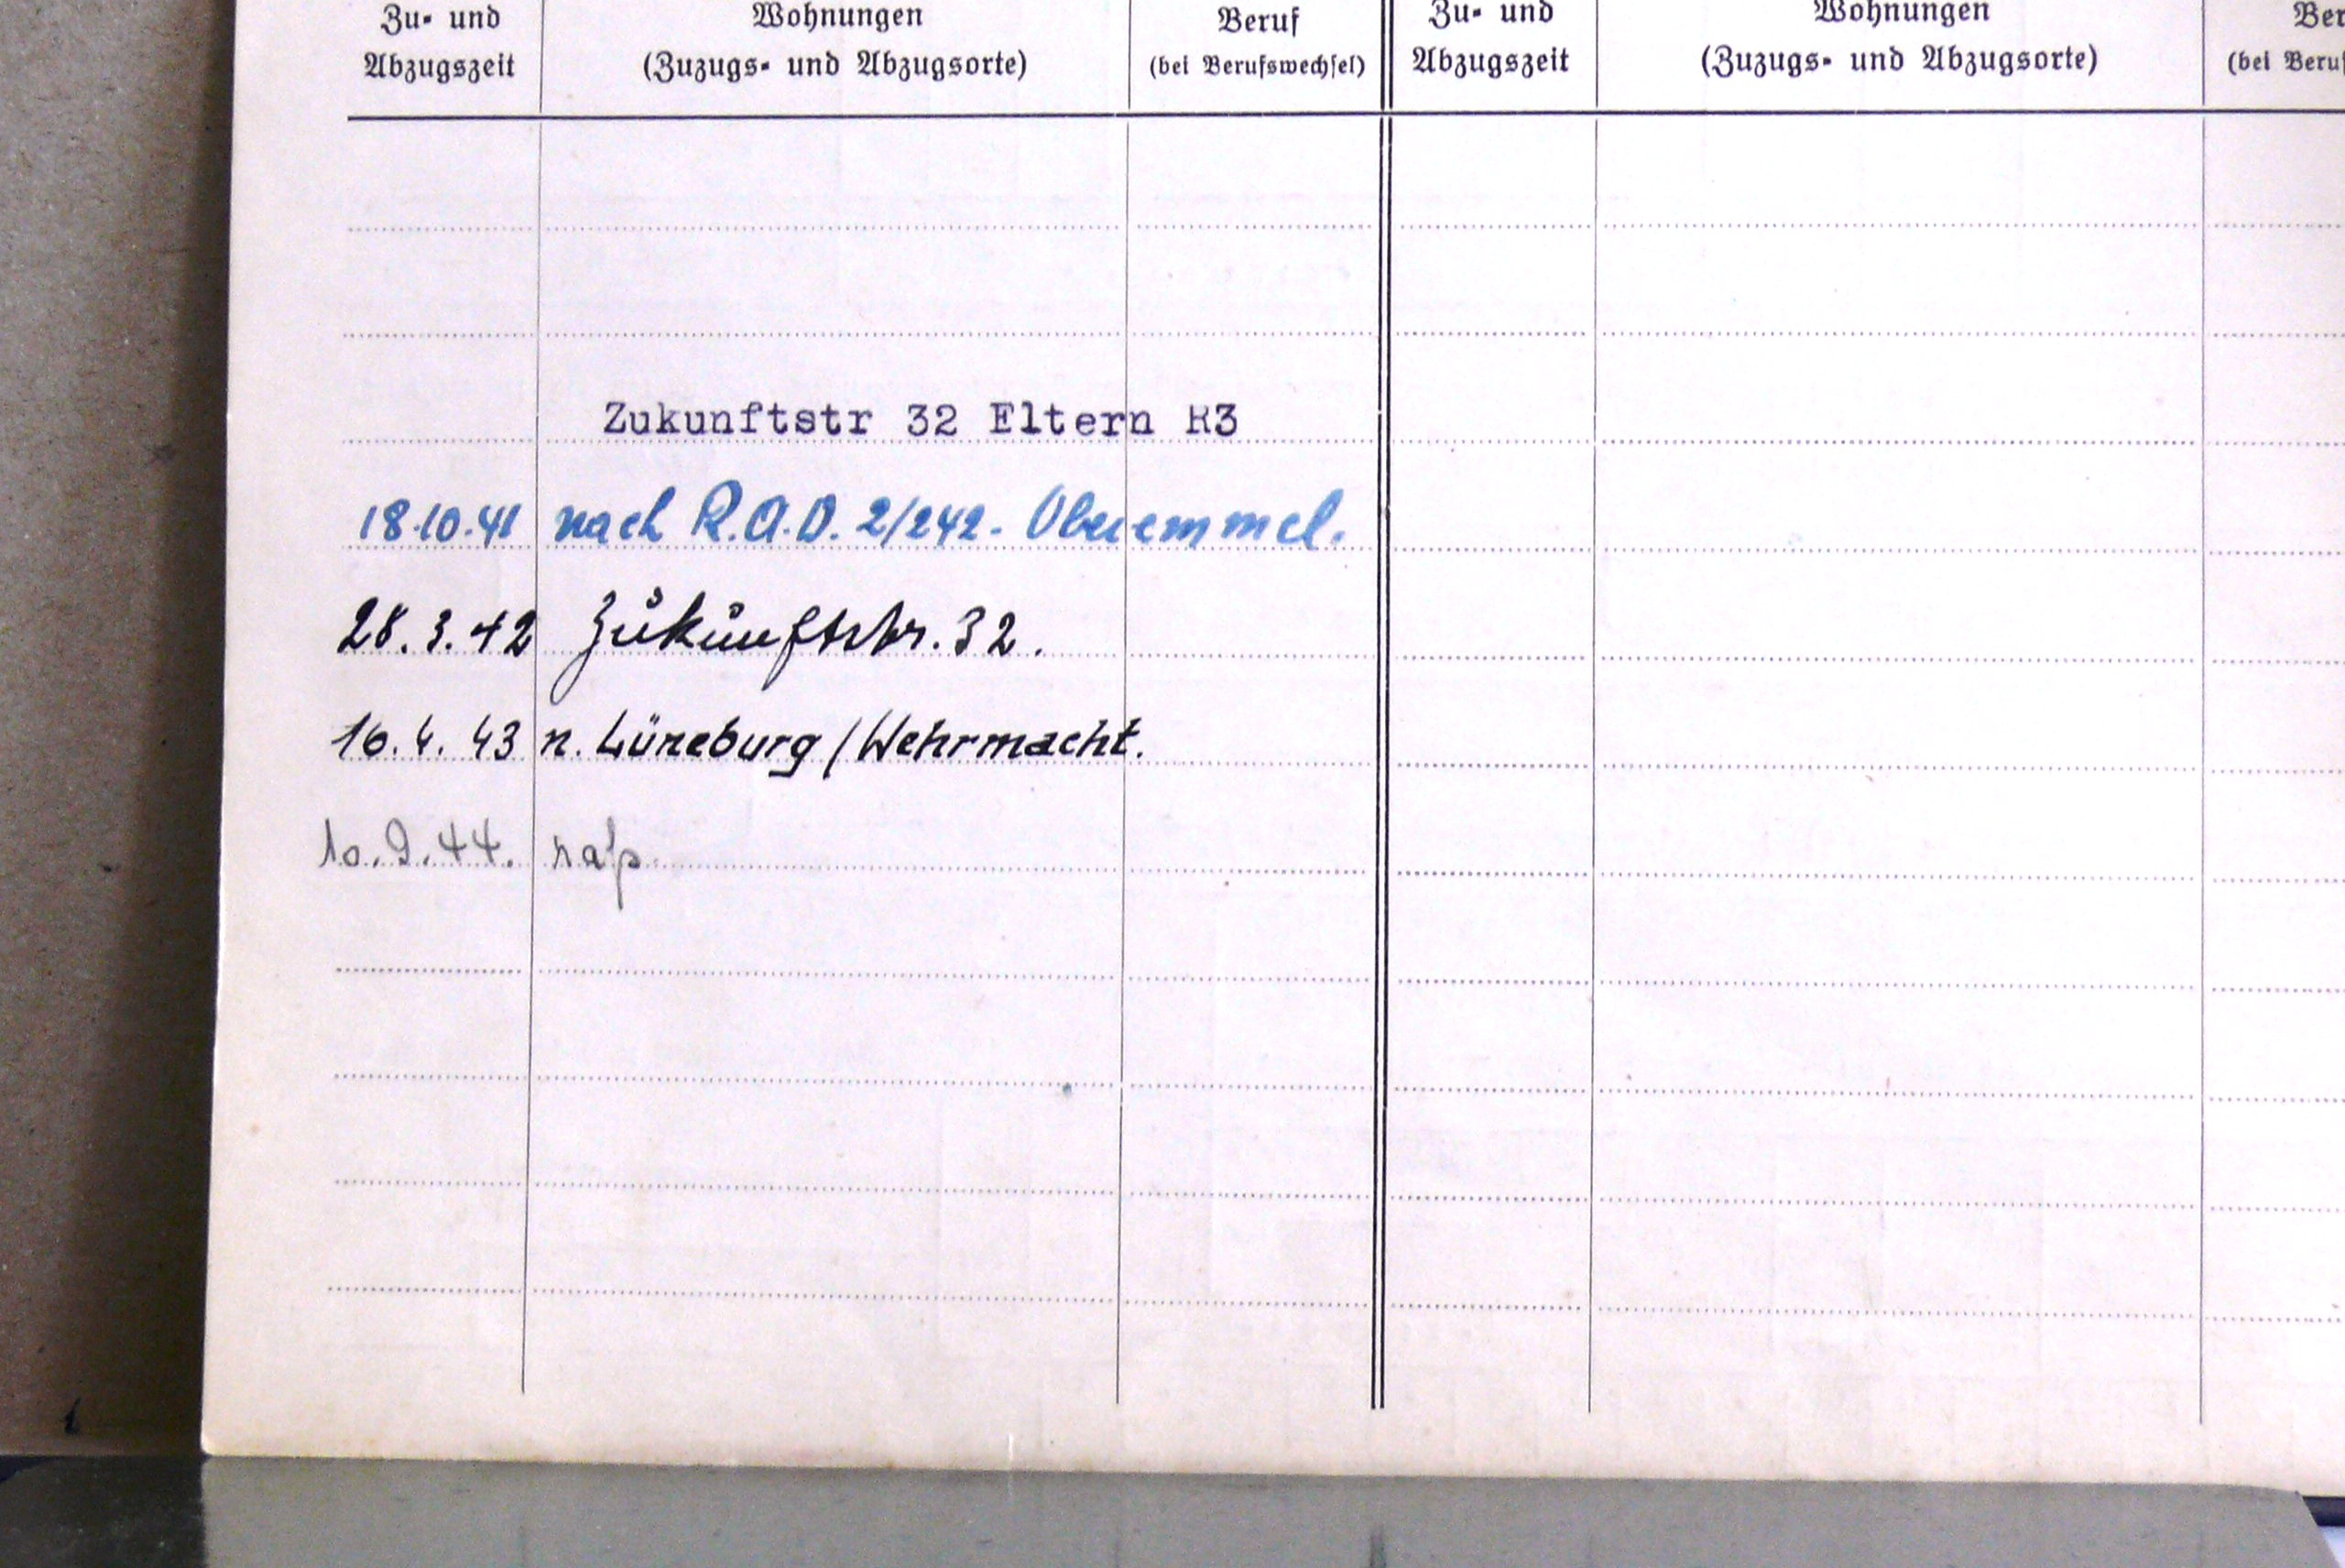 Zu- und Wohnungen Beruf Zu- und Wohnungen Ber
Abzugszeit (Zuzugs- und Abzugsorte) (bei Berufswechsel) Abzugszeit (Zuzugs- und Abzugsorte) (bei Beruf
Zukunftstr 32 Eltern R3
18.10.41 nach R.A.D. 2/242. Oberemmel.
28.3.42 Zukunftstr. 32.
16.4.43 n. Lüneburg / Wehrmacht.
10.9.44.